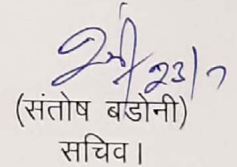 23/7
(संतोष बडोनी)
सचिव।